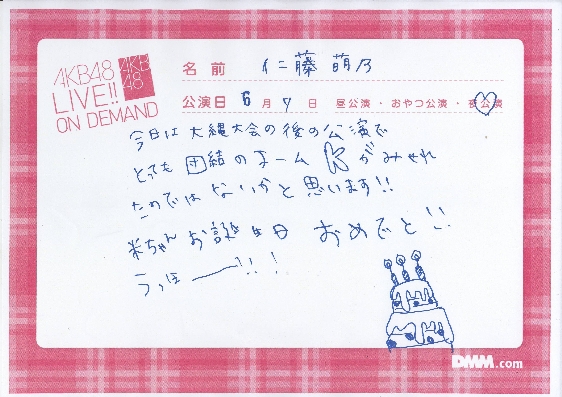 AKB48
LIVE!!
ON DEMAND
AKB
48
名前 仁藤萌乃
公演日 6月7日 昼公演・おやつ公演・夜公演
今日は大縄大会の後の公演で
とても団結のチームKがみせれ
たのではないかと思います!!
米ちゃんお誕生日おめでと!!
うっほー!!!
DMM.com